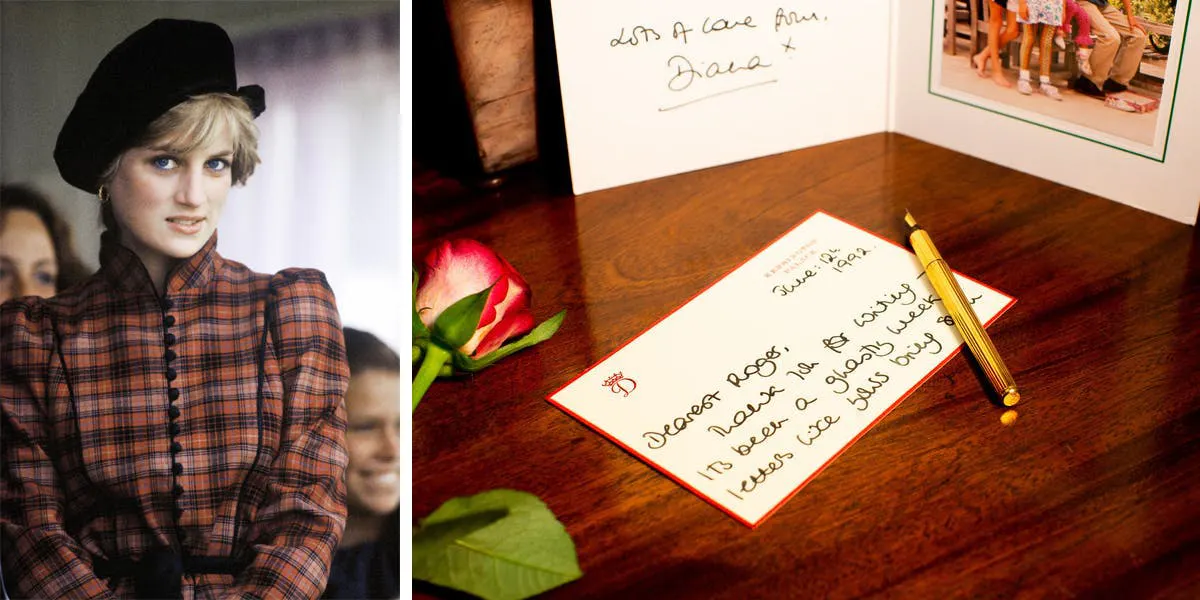 Lots of love from.
Diana x
KENSINGTON PALACE
June: 12th
1992.
D
Dearest Roger,
Thank you for writing
It's been a ghastly week
letters like yours bring